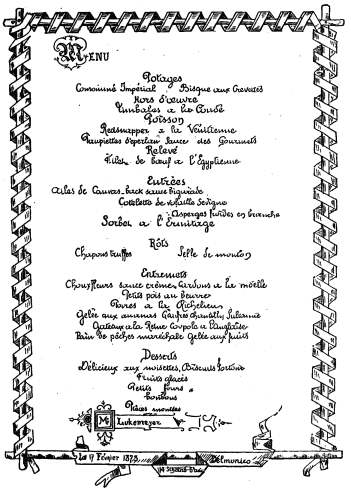 Menu
Potages
Consommé Impérial Bisque aux Crevettes
Hors d'œuvre
Timbales a la Condé
Poisson
Redsnapper a la Vénitienne
Paupiettes d'eperlan sauce des Gourmets
Relevé
Filet de bœuf a l'Egyptienne
Entrées
Ailes de Canvas-back sauce bigarade
Cotelette de volaille Sevigne
Asperges froides en branche
Sorbet a l'Ermitage
Rôts
Chapons truffés Selle de mouton
Entremets
Chouxfleurs sauce crême, Cardons a la moëlle
Petits pois au beurre
Poires a la Richelieu
Gelée aux ananas Gaufres chantilly Sultanne
Gateaux a la Reine a l'anglaise
Pain de pêches maréchale Gelée aux fruits
Desserts
Délicieux aux noisettes, Biscuits tortoni
Fruits glacés
Petits fours
bonbons
Pièces montées
Mr Lukemeyer
Le 17 Février 1873 Delmonico
14